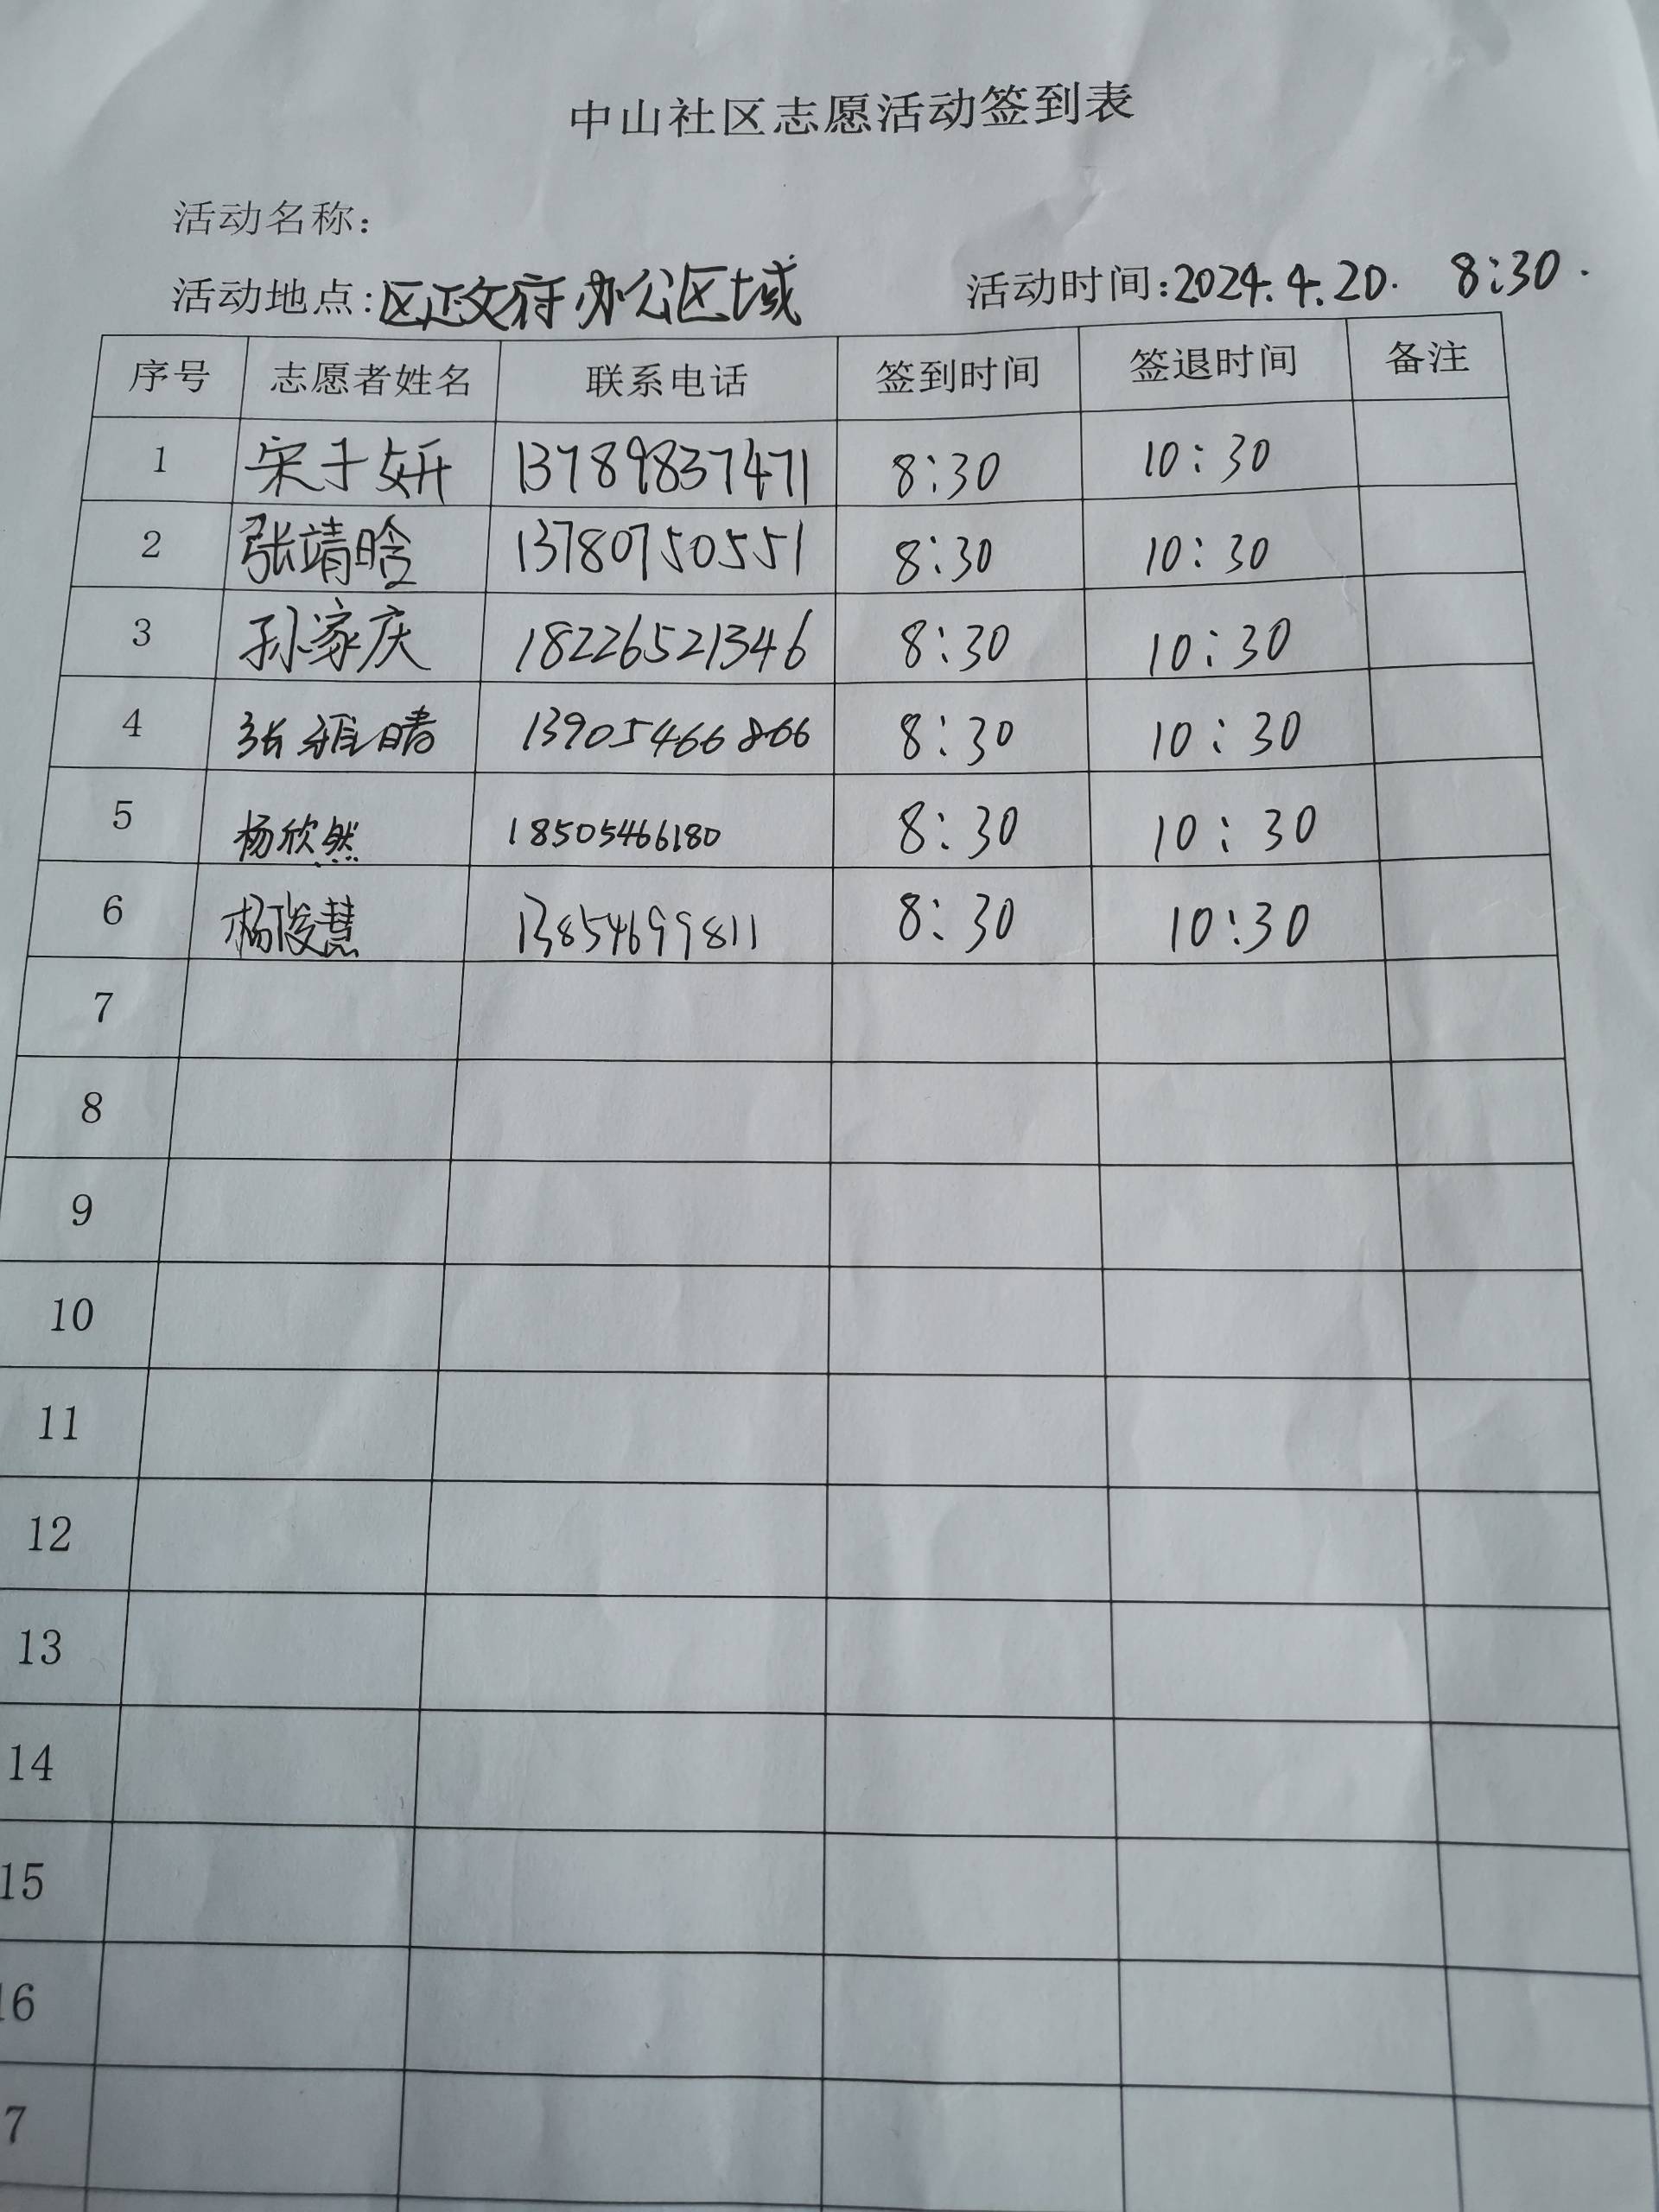 中山社区志愿活动签到表
活动名称：
活动地点：区政府办公区域 活动时间：2024.4.20. 8:30.
序号 志愿者姓名 联系电话 签到时间 签退时间 备注
1 宋于妍 13789837471 8:30 10:30
2 张靖晗 13780750551 8:30 10:30
3 孙家庆 18226521346 8:30 10:30
4 张雅晴 13905466866 8:30 10:30
5 杨欣然 18505466180 8:30 10:30
6 杨俊慧 13854699811 8:30 10:30
7
8
9
10
11
12
13
14
15
16
7